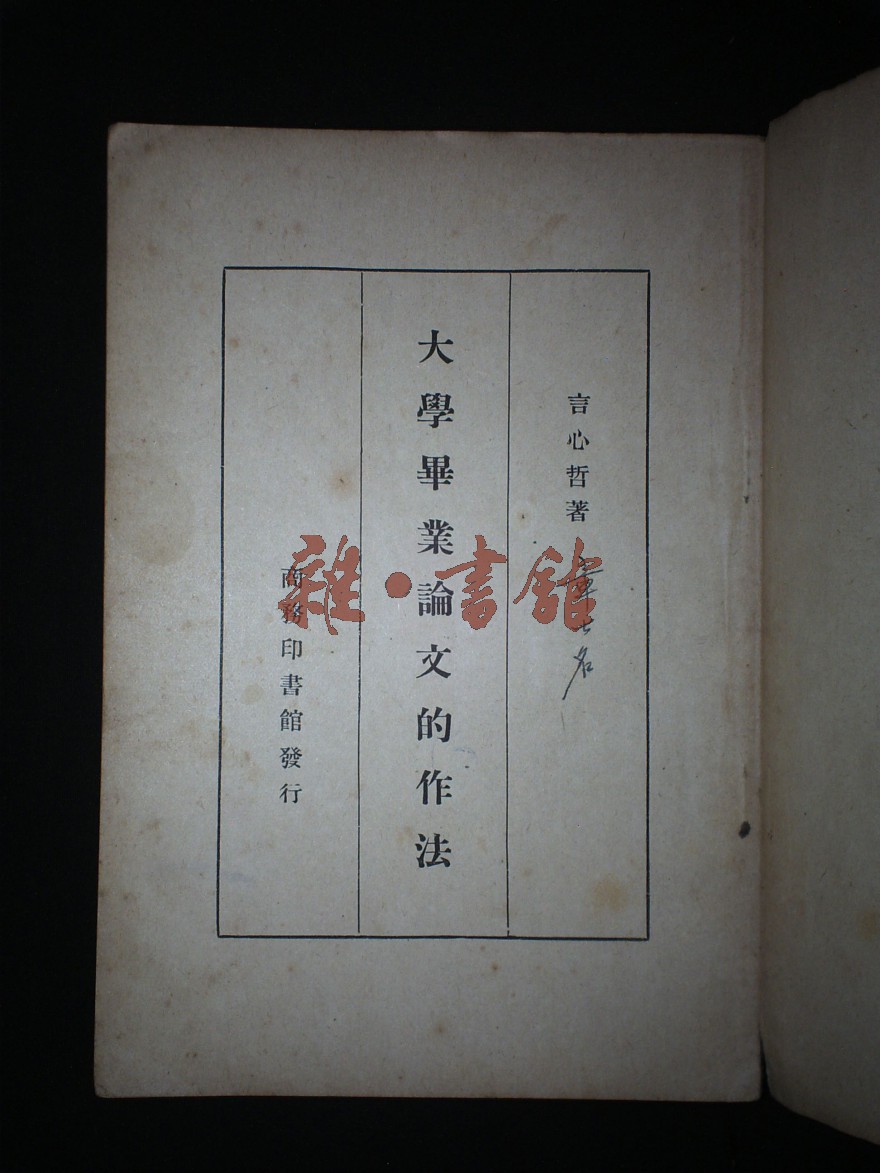 言心哲著
大學畢業論文的作法
商務印書館發行
雜·書館